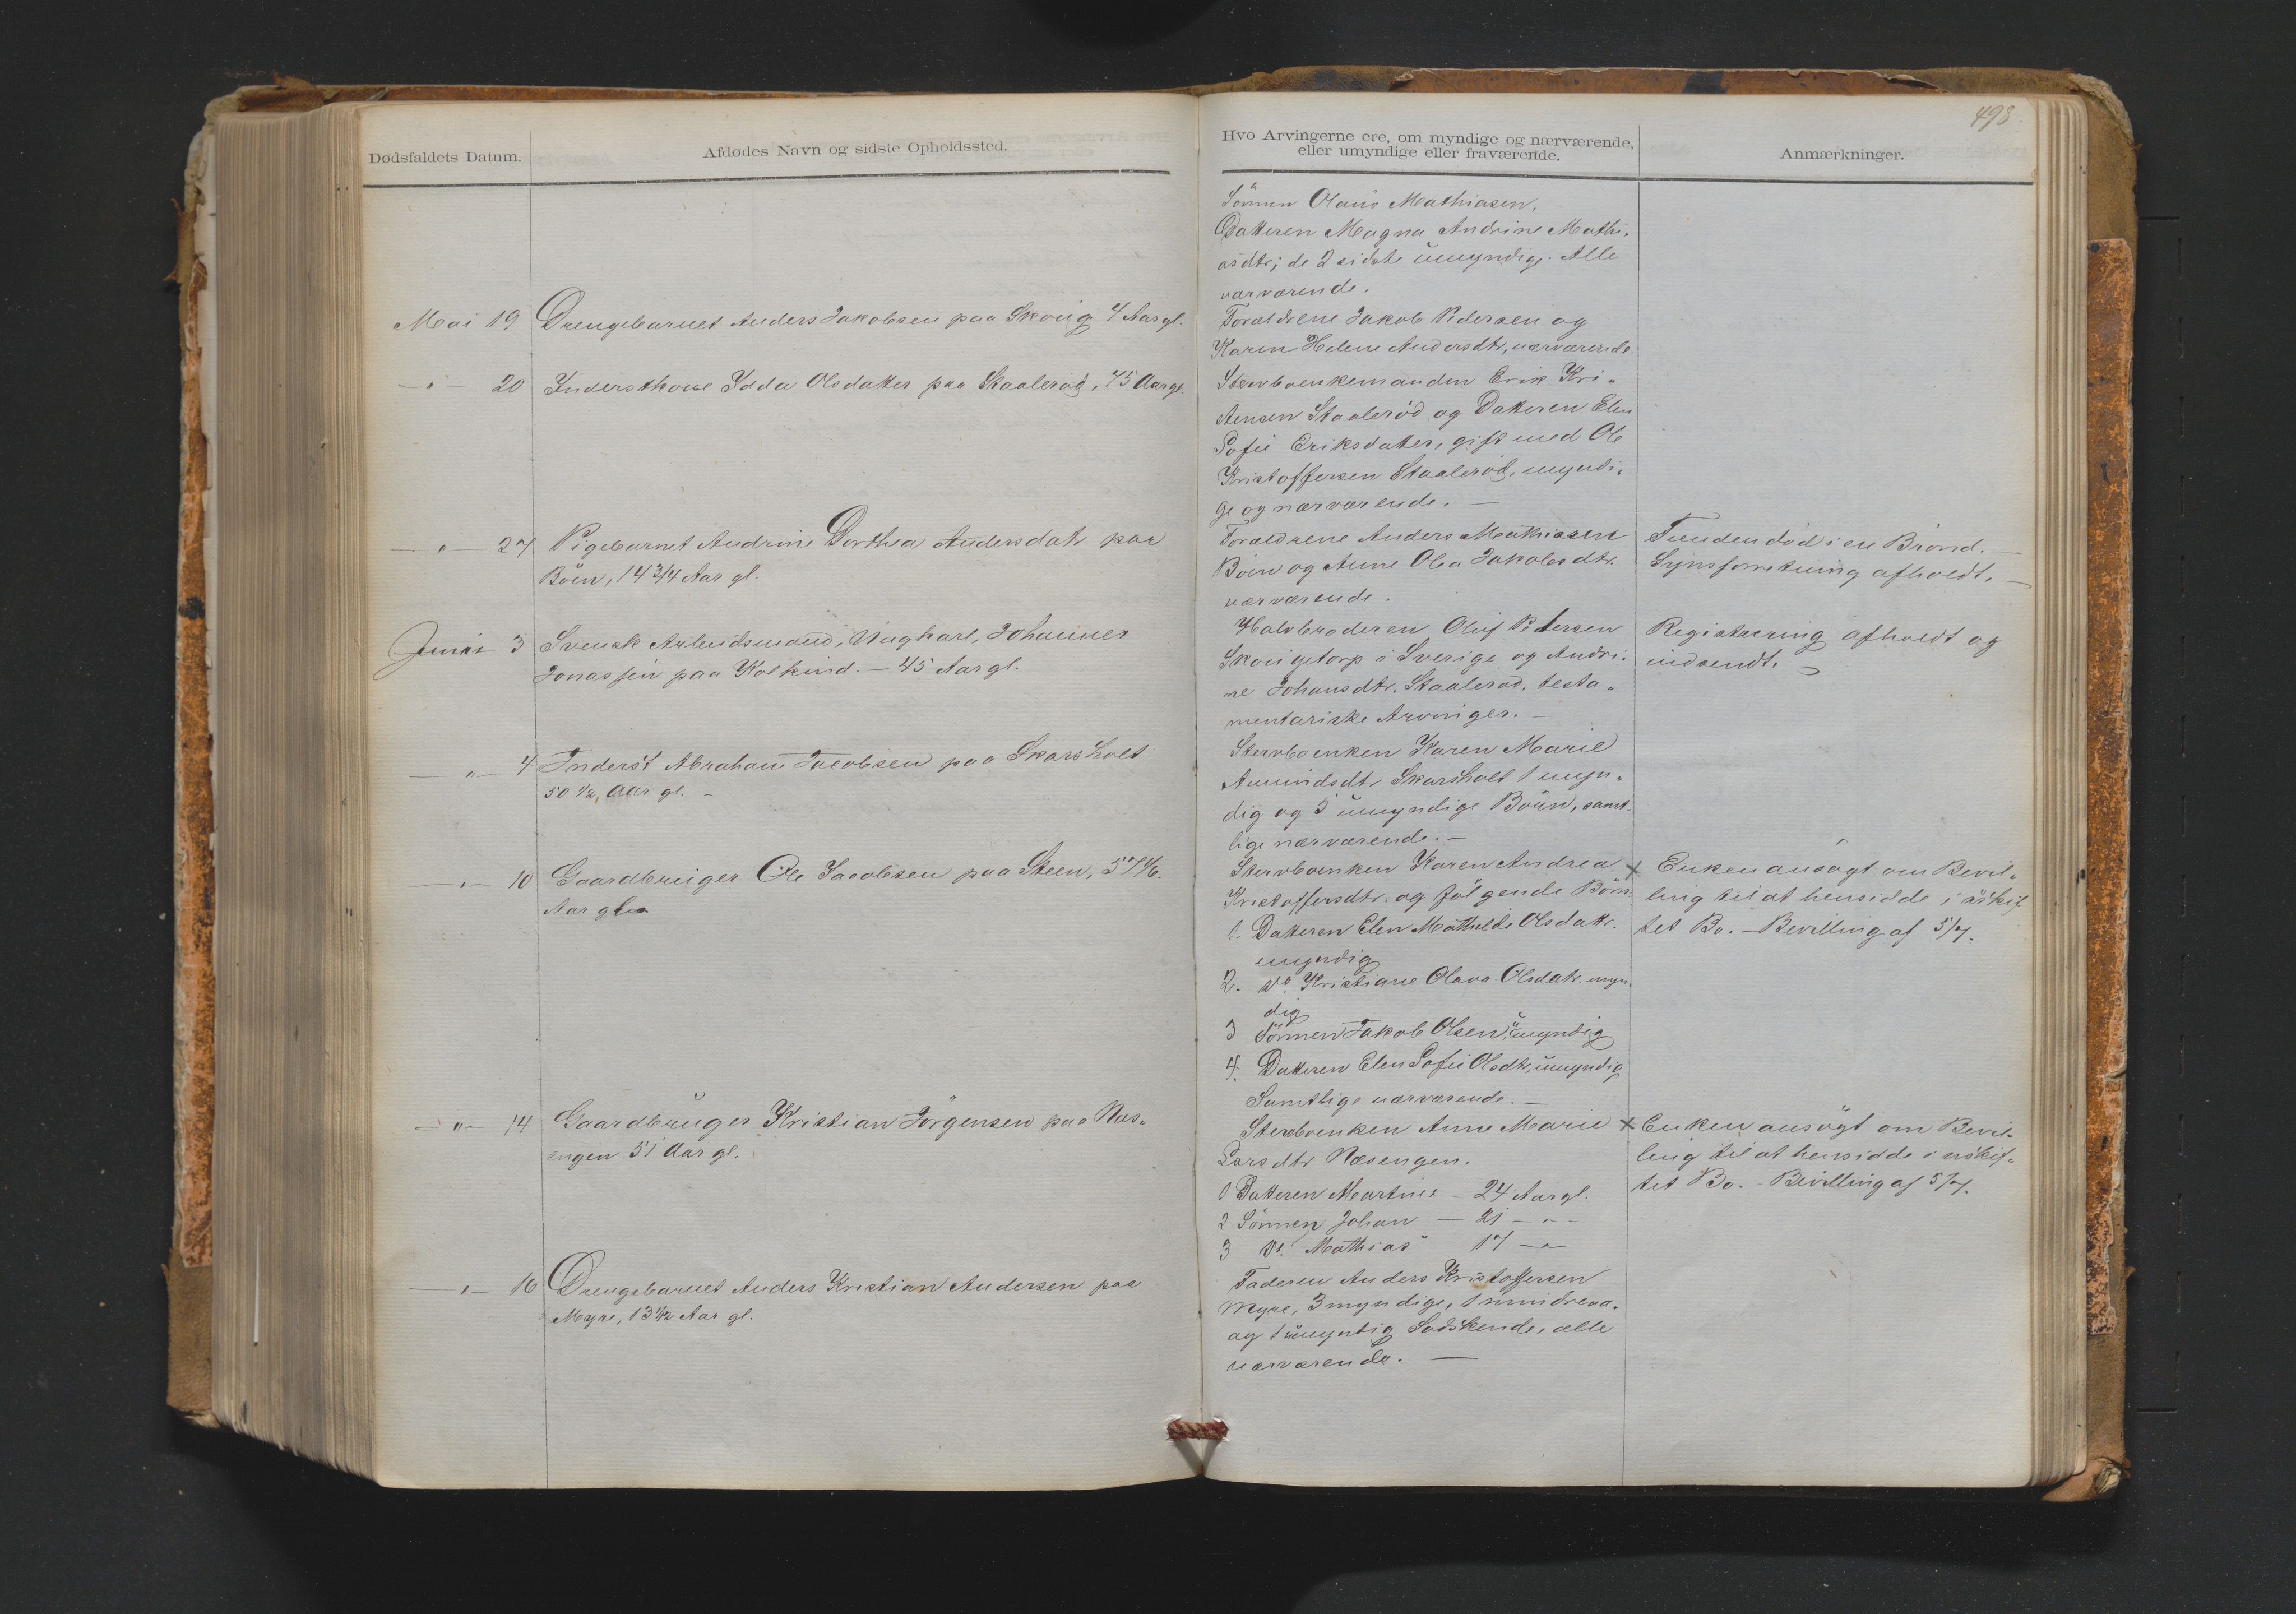 498.
Dødsfaldets Datum.
Afdødes Navn og sidste Opholdssted.
Hvo Arvingerne ere, om myndige og nærværende,
eller umyndige eller fraværende.
Anmærkninger.
Sönnen Olaus Mathiasen,
Datteren Magna Andrine Mathi-
asdtr; de 2 sidste umyndige. Alle
nærværende.
Mai 19 Drengebarnet Anders Jakobsen paa Skovig 4 Aar gl.
Forældrene Jakob Pedersen og
Karen Helene Andersdtr, nærværende
-"- 20 Inderstkone Idda Olsdatter paa Staaleröd, 45 Aar gl.
Stervboenkemanden Erik Kri-
stensen Staaleröd og Datteren Elen
Sofie Eriksdatter, gift med Ole
Kristoffersen Staaleröd, myndi-
ge og nærværende. -
-"- 27 Pigebarnet Andrine Dorthea Andersdatr paa
Böen, 14 3/4 Aar gl.
Forældrene Anders Mathiasen
Böen og Anne Olea Jakobsdtr.
nærværende.
Funden död i en Brönd. -
Synsforretning afholdt. -
Juni 3 Svensk Arbeidsmand, Ungkarl, Johannes
Jonassen paa Kolkind. - 45 Aar gl.
Halvbroderen Oluf Petersen
Skovigetorp i Sverige og Andri-
ne Johansdtr. Staaleröd, testa-
mentariske Arvinger. -
Registrering afholdt og
indsendt. -
-"- 4 Inderst Abraham Jacobsen paa Skarsholt
50 1/2 Aar gl. -
Stervboenken Karen Marie
Amundsdtr Skarsholt 1 myn-
dig og 5 umyndige Börn, samt-
lige nærværende. -
-"- 10 Gaardbruger Ole Jacobsen paa Steen, 57 1/6.
Aar gl.
Stervboenken Karen Andrea
Kristoffersdtr. og fölgende Börn
1. Datteren Elen Mathilde Olsdatr.
myndig
2. do Kristiane Olava Olsdatr. myn-
dig
3 Sönnen Jakob Olsen, umyndig
4. Datteren Elen Sofie Olsdtr, umyndig
Samtlige nærværende. -
x Enken ansögt om Bevil-
ling til at hensidde i uskif
tet Bo. - Bevilling af 5/7.
-"- 14 Gaardbruger Kristian Jörgensen paa Næs-
engen 51 Aar gl.
Stervboenken Anne Marie
Larsdtr Næsengen.
1 Datteren Martine - 24 Aar gl.
2 Sönnen Johan - 21 - " -
3 Do. Mathias 17 - " -
x Enken ansögt om Bevil-
ling til at hensidde i uskif-
tet Bo. - Bevilling af 5/7.
-"- 16 Drengebarnet Anders Kristian Andersen paa
Myre, 13 1/2 Aar gl.
Faderen Anders Kristoffersen
Myre, 3 myndige, 1 mindreaa.
og 1 umyndig Södskende, alle
nærværende. -